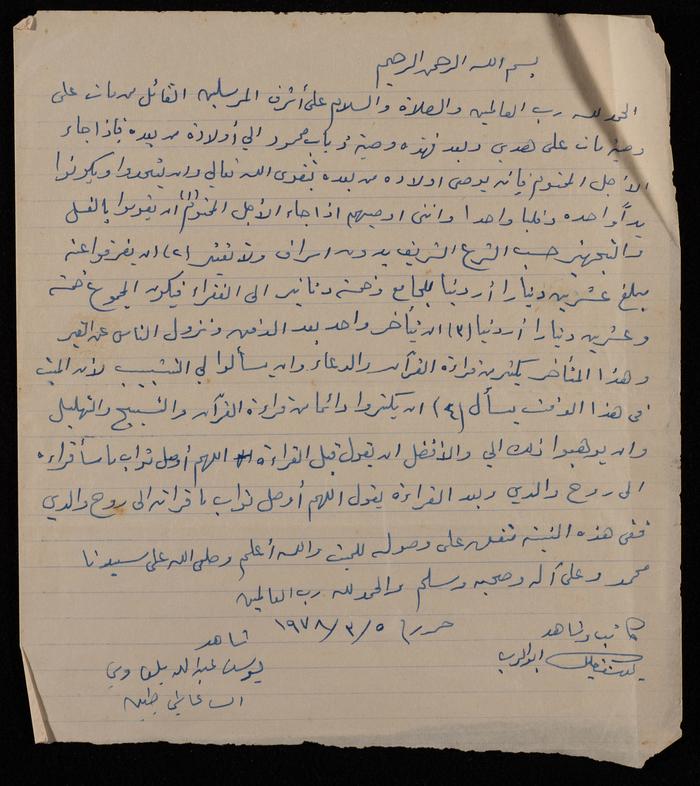 بسم الله الرحمن الرحيم
الحمد لله رب العالمين والصلاة والسلام على أشرف المرسلين القائل من مات على
وصية مات على هدى وبعد فهذه وصية ذياب محمود الى أولاده من بعده فإذا جاء
الأجل المحتوم فإنه يوصى اولاده من بعده بتقوى الله تعالى وان يتحدوا ويكونوا
يداً واحده وقلبا واحدا وانني اوصيهم اذا جاء الأجل المحتوم (١) أن يقوموا بالغسل
والتجهيز حسب الشرع الشريف بدون اسراف ولا تقتير (٢) ان يفرقوا عنه
مبلغ عشرين دينارا أردنيا للجامع وخمسة دنانير الى الفقراء فيكون المجموع خمسة
وعشرين دينارا أردنيا (٣) ان يتأخر واحد بعد الدفن ونزول الناس عن القبر
وهذا المتأخر يكثر من قراءة القرآن والدعاء وان يسألوا لي التثبيت لأن الميت
في هذا الوقت يسأل (٤) ان يكثروا دائما من قراءة القرآن والتسبيح والتهليل
وان يوهبوا ذلك الي والأفضل ان يقول قبل القراءة اللهم أوصل ثواب ما سأقراءه
الى روح والدي وبعد القراءة يقول اللهم أوصل ثواب ما قرأته الى روح والدي
ففي هذه النية متفق على وصوله للميت والله أعلم وصلى الله على سيدنا
محمد وعلى آله وصحبه وسلم والحمد لله رب العالمين
حرر في ٥/٣/١٩٧٨
كاتب وشاهد
ابو الرب
شاهد
يوسف عبد الله